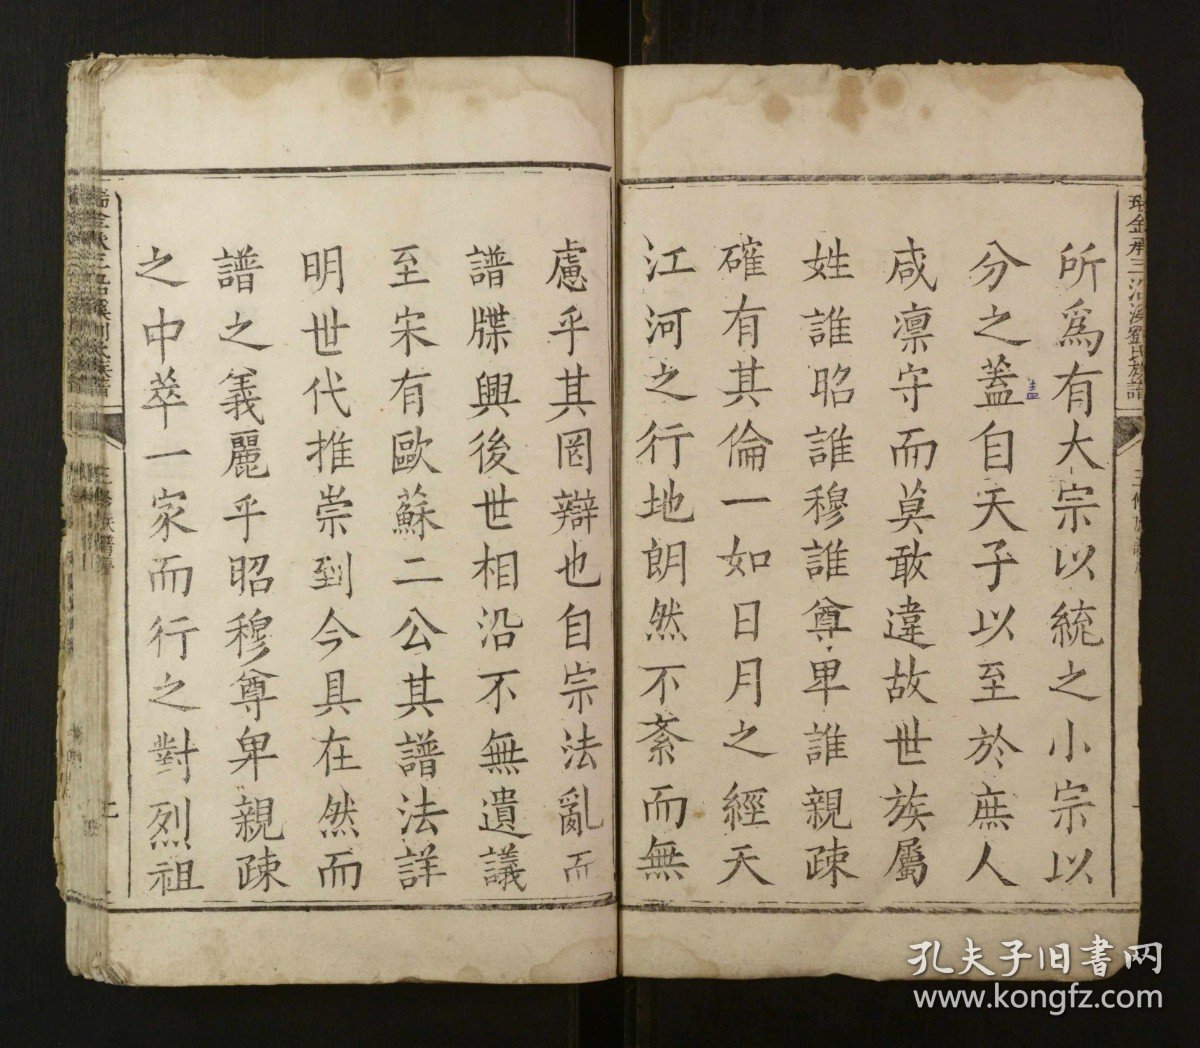 所爲有大宗以統之小宗以
分之蓋自天子以至於庶人
盖
咸凛守而莫敢違故世族屬
姓誰昭誰穆誰尊卑誰親疎
確有其倫一如日月之經天
江河之行地朗然不紊而無
慮乎其罔辯也自宗法亂而
譜牒興後世相沿不無遺議
至宋有歐蘇二公其譜法詳
明世代推崇到今具在然而
譜之義麗乎昭穆尊卑親疎
之中萃一家而行之對烈祖
孔夫子旧书网
www.kongfz.com